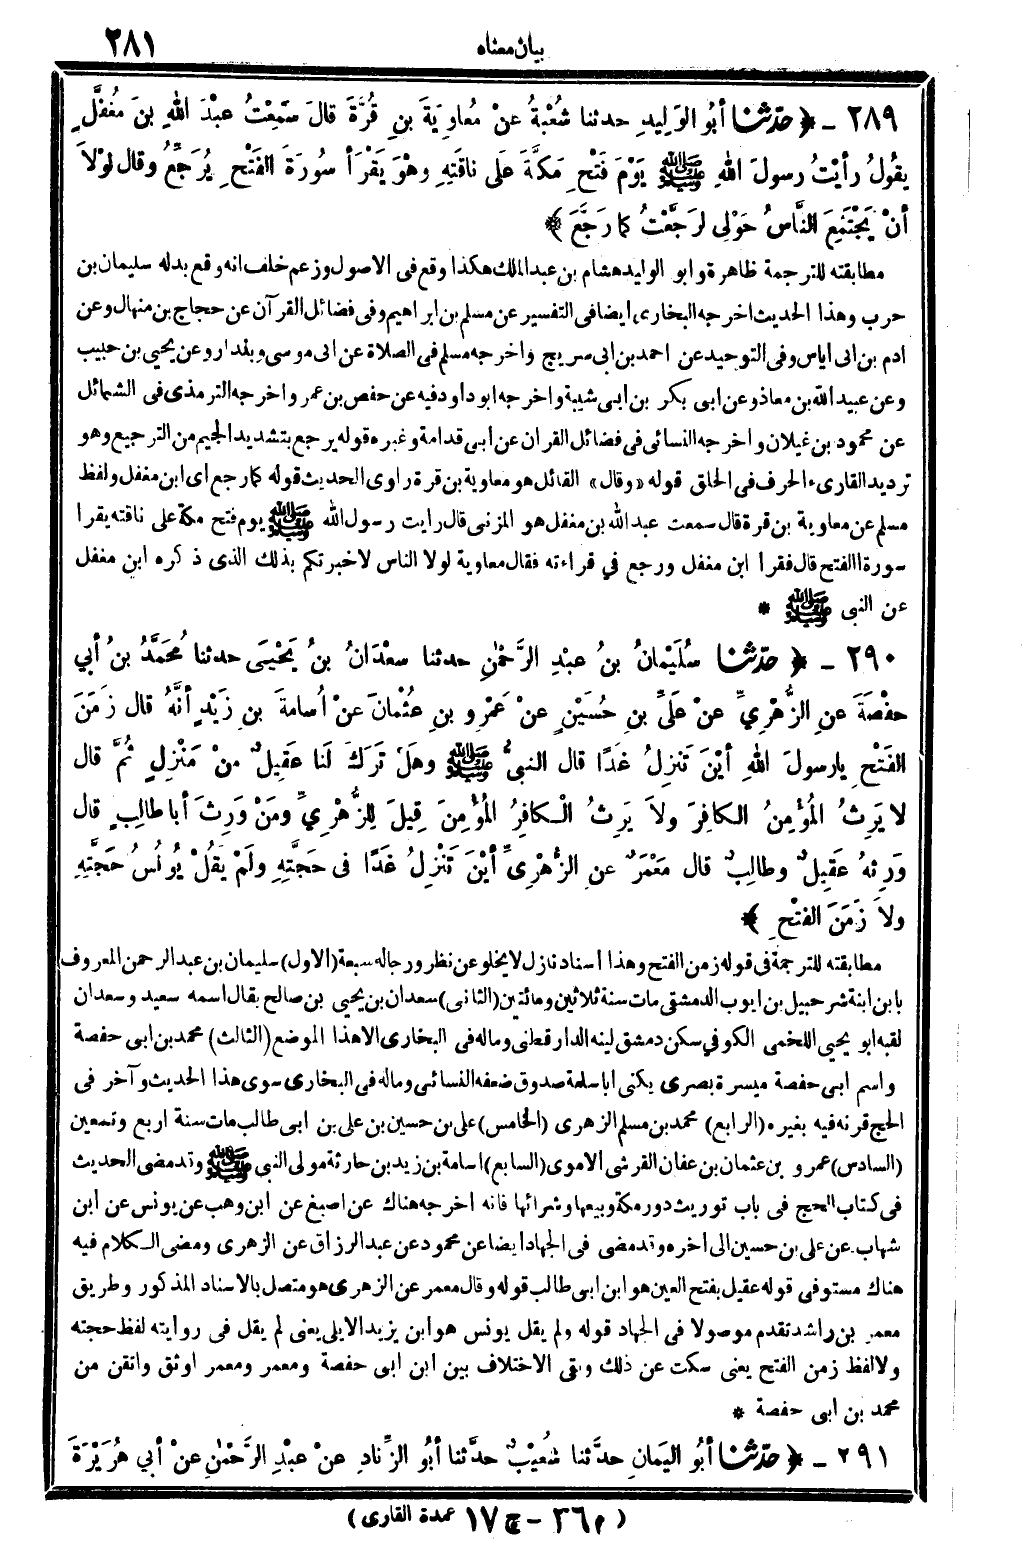 بيان معناه ٢٨١
٢٨٩ - ﴿ حدّثنا أبُو الوَلِيدِ حدثنا شُعْبَةُ عنْ مُعاوِيَةَ بنِ قُرَّةَ قالَ سَمِعْتُ عبْدَ اللهِ بنَ مُغَفَّلٍ
يقُولُ رأيْتُ رسولَ اللهِ ﷺ يَوْمَ فَتْحِ مَكَّةَ عَلَى ناقَتِهِ وهْوَ يَقْرَأُ سُورَةَ الفَتْحِ يُرَجِّعُ وقال لوْلاَ
أنْ يَجْتَمِعَ النَّاسُ حَوْلِى لرَجَّعْتُ كما رَجَّعَ ﴾
مطابقته للترجمة ظاهرة وابو الوليد هشام بن عبد الملك هكذا وقع فى الاصول وزعم خلف انه وقع بدله سليمان بن
حرب وهذا الحديث اخرجه البخارى ايضا فى التفسير عن مسلم بن ابراهيم وفى فضائل القرآن عن حجاج بن منهال وعن
ادم بن ابى اياس وفى التوحيد عن احمد بن ابى سريج واخرجه مسلم فى الصلاة عن ابى موسى وبندار وعن يحيى بن حبيب
وعن عبيد الله بن معاذ وعن ابى بكر بن ابى شيبة واخرجه ابو داود فيه عن حفص بن عمر واخرجه الترمذى فى الشمائل
عن محمود بن غيلان واخرجه النسائى فى فضائل القران عن ابى قدامة وغيره قوله يرجع بتشديد الجيم من الترجيع وهو
ترديد القارىء الحرف فى الحلق قوله «وقال» القائل هو معاوية بن قرة راوى الحديث قوله كما رجع اى ابن مغفل ولفظ
مسلم عن معاوية بن قرة قال سمعت عبد الله بن مغفل هو المزنى قال رايت رسول الله ﷺ يوم فتح مكة على ناقته يقرا
سورة االفتح قال فقرا ابن مغفل ورجع في قراءته فقال معاوية لولا الناس لاخبرتكم بذلك الذى ذكره ابن مغفل
عن النبى ﷺ *
٢٩٠ - ﴿ حدّثنا سُلَيْمانُ بنُ عبْدِ الرَّحْمٰنِ حدثنا سعْدَانُ بنُ يَحْيَى حدثنا مُحَمَّدُ بنُ أبي
حفْصَةَ عنِ الزُّهْرِيِّ عنْ علَيِّ بنِ حُسَيْنٍ عنْ عَمْرِو بنِ عُثْمانَ عنْ أُسامةَ بنِ زيْدٍ أنَّهُ قال زَمَنَ
الفَتْحِ يارسولَ اللهِ أيْنَ تَنزِلُ غدًا قال النبىُّ ﷺ وهَلْ تَرَكَ لَنا عَقِيلٌ منْ مَنْزِلٍ ثُمَّ قال
لا يَرِثُ المُؤْمِنُ الكافِرَ ولاَ يَرِثُ الْكافِرُ المُؤْمِنَ قِيلَ لِلزُّهْرِيِّ ومَنْ وَرِثَ أبا طالِبٍ قال
وَرِثهُ عَقِيلٌ وطالِبٌ قال مَعْمَرٌ عنِ الزُّهْرِىِّ أيْنَ تَنْزِلُ غَدًا فى حَجَّتِهِ ولَمْ يَقُلْ يُونُسُ حَجَّتِهِ
ولاَ زَمَنَ الفتْحِ ﴾
مطابقته للترجمة فى قوله زمن الفتح وهذا أسناد نازل لا يخلو عن نظر ورجاله سبعة (الاول) سليمان بن عبد الرحمن المعروف
بابن ابنة شرحبيل بن ايوب الدمشقى مات سنة ثلاثين ومائتين (الثانى) سعدان بن يحيى بن صالح يقال اسمه سعيد وسعدان
لقبه ابو يحيى اللخمى الكوفي سكن دمشق لينه الدار قطنى وماله فى البخارى الا هذا الموضع (الثالث) محمد بن ابى حفصة
واسم ابى حفصة ميسرة بصرى يكنى ابا سلمة صدوق ضعفه النسائى وماله فى البخارى سوى هذا الحديث وآخر فى
الحج قرنه فيه بغيره (الرابع) محمد بن مسلم الزهرى (الخامس) على بن حسين بن على بن ابى طالب مات سنة اربع وتسعين
(السادس) عمرو بن عثمان بن عفان القرشى الاموى (السابع) اسامة بن زيد بن حارثة مولى النبى ﷺ وقد مضى الحديث
فى كتاب الحج فى باب توريث دور مكة وبيعها وشرائها فانه اخرجه هناك عن اصبغ عن ابن وهب عن يونس عن ابن
شهاب عن على بن حسين الى اخره وقد مضى فى الجهاد ايضا عن محمود عن عبد الرزاق عن الزهرى ومضى الكلام فيه
هناك مستوفى قوله عقيل بفتح العين هو ابن ابى طالب قوله وقال معمر عن الزهرى هو متصل بالاسناد المذكور وطريق
معمر بن راشد تقدم موصولا فى الجهاد قوله ولم يقل يونس هو ابن يزيد الايلى يعنى لم يقل فى روايته لفظ حجته
ولا لفظ زمن الفتح يعنى سكت عن ذلك وبقى الاختلاف بين ابن ابى حفصة ومعمر ومعمر اوثق واتقن من
محمد بن ابى حفصة *
٢٩١ - ﴿ حدّثنا أبُو اليَمانِ حدَّثنا شُعَيْبٌ حدَّثنا أبُو الزِّنادِ عنْ عبْدِ الرَّحْمٰنِ عنْ أبي هُرَيْرَةَ
( م ٣٦ - ج ١٧ عمدة القارى )